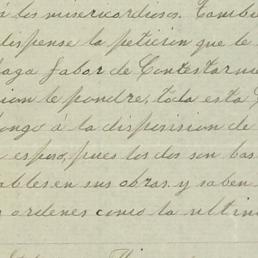 á los misericordiosos. Tambie
dispense la peticion que le
haga fabor de Contestarme
cion le pondre, toda esta
pongo á la disposision de
esposo, pues los dos son bas
ables en sus obras y saben
ordenes como la ultim